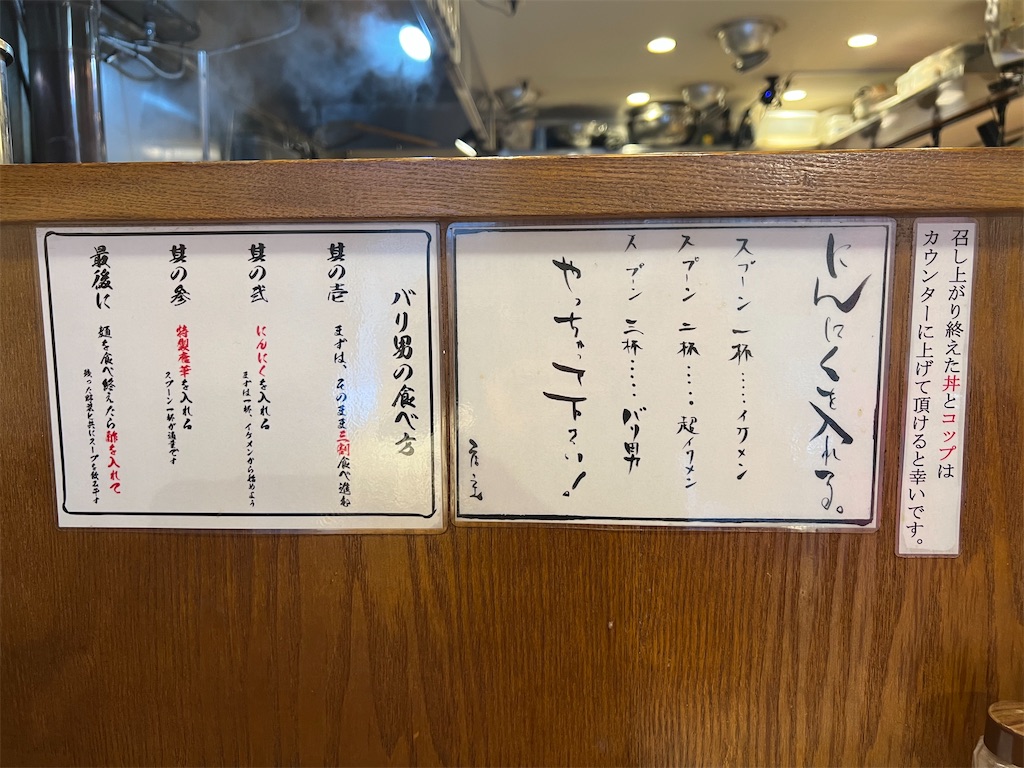 召し上がり終えた丼とコップは
カウンターに上げて頂けると幸いです。
にんにくを入れる。
スプーン一杯……イケメン
スプーン二杯……超イケメン
スプーン三杯……バリ男
やっちゃって下さい!
店主
バリ男の食べ方
其の壱 まずは、そのまま三割食べ進む
其の弐 にんにくを入れる
まずは一杯、イケメンから始めよう
其の参 特製唐華を入れる
スプーン一杯が適量です
最後に 麺を食べ終えたら酢を入れて
残った野菜と共にスープを飲る干す